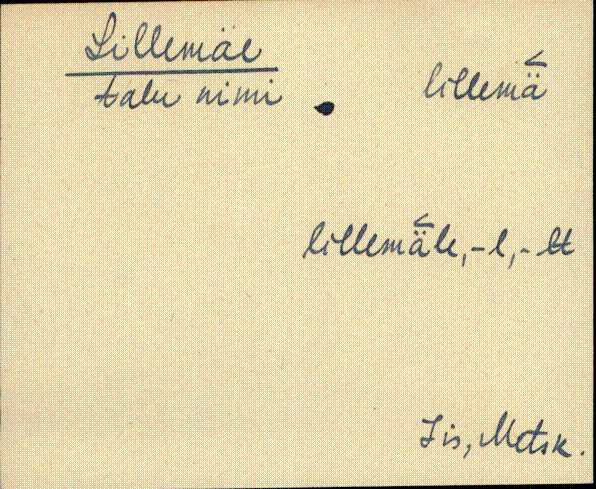 Lillemäe
talu nimi lillemä̆
lillemä̆le, -l, -lt
Iis, Metsk.